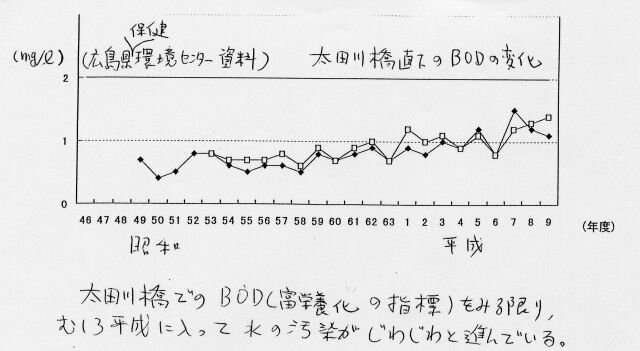 保健
(mg/ℓ) (広島県環境センター資料) 太田川橋直下のBODの変化
2
1
0
46 47 48 49 50 51 52 53 54 55 56 57 58 59 60 61 62 63 1 2 3 4 5 6 7 8 9 (年度)
昭和 平成
太田川橋でのBOD(富栄養化の指標)をみる限り,
むしろ平成に入って水の汚染がじわじわと進んでいる。